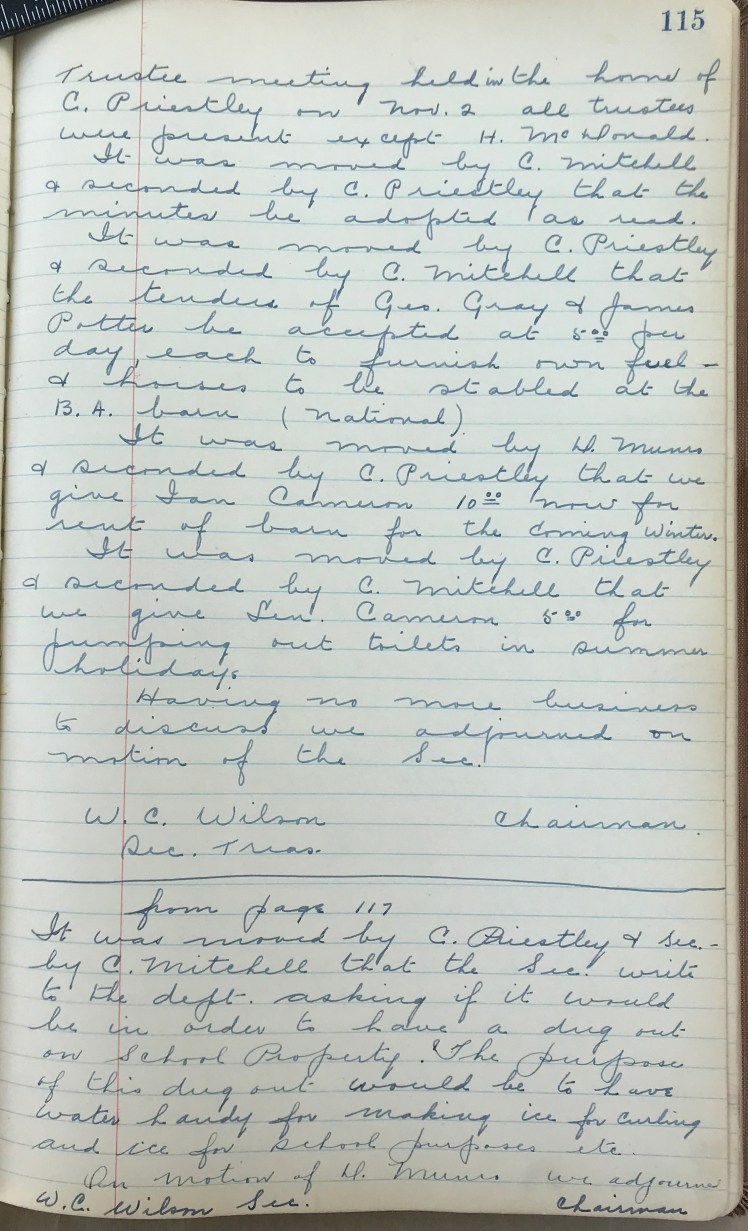 115
Trustee meeting held in the home of
C. Priestley on Nov. 2 all trustees
were present except H. McDonald.
It was moved by C. Mitchell
& seconded by C. Priestley that the
minutes be adopted as read.
It was moved by C. Priestley
& seconded by C. Mitchell that
the tenders of Geo. Gray & James
Potter be accepted at 5.00 per
day, each to furnish own fuel -
& horses to be stabled at the
B.A. barn (National)
It was moved by D. Munro
& seconded by C. Priestley that we
give Ian Cameron 10.00 now for
rent of barn for the coming winter.
It was moved by C. Priestley
& seconded by C. Mitchell that
we give Len. Cameron 5.00 for
pumping out toilets in summer
holidays
Having no more business
to discuss we adjourned on
motion of the Sec.
W. C. Wilson Chairman.
Sec. Treas.
from page 117
It was moved by C. Priestley & sec. -
by C. Mitchell that the Sec. write
to the dept. asking if it would
be in order to have a dug out
on School Property. The purpose
of this dug out would be to have
water handy for making ice for curling
and ice for school purposes etc.
On motion of D. Munro we adjourne
W.C. Wilson Sec. Chairman